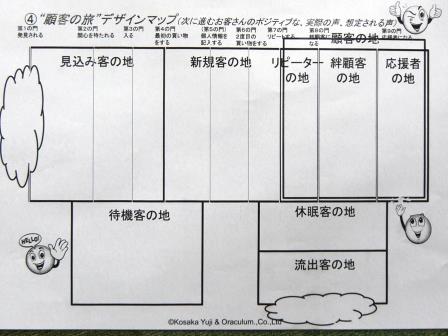 ④“顧客の旅”デザインマップ(次に進むお客さんのポジティブな、実際の声、想定される声)
第1の門 第2の門 第3の門 第4の門 (第5の門) 第6の門 第7の門 第8の門 第9の門
発見される 関心を持たれる 入る 最初の買い物 個人情報を 2度目の リピートする
をする 記入する 買い物をする
顧客の地
見込み客の地 新規客の地 リピーター 絆顧客 応援者
の地 の地 の地
待機客の地 休眠客の地
流出客の地
HELLO!
©Kosaka Yuji & Oraculum.,Co.,Ltd